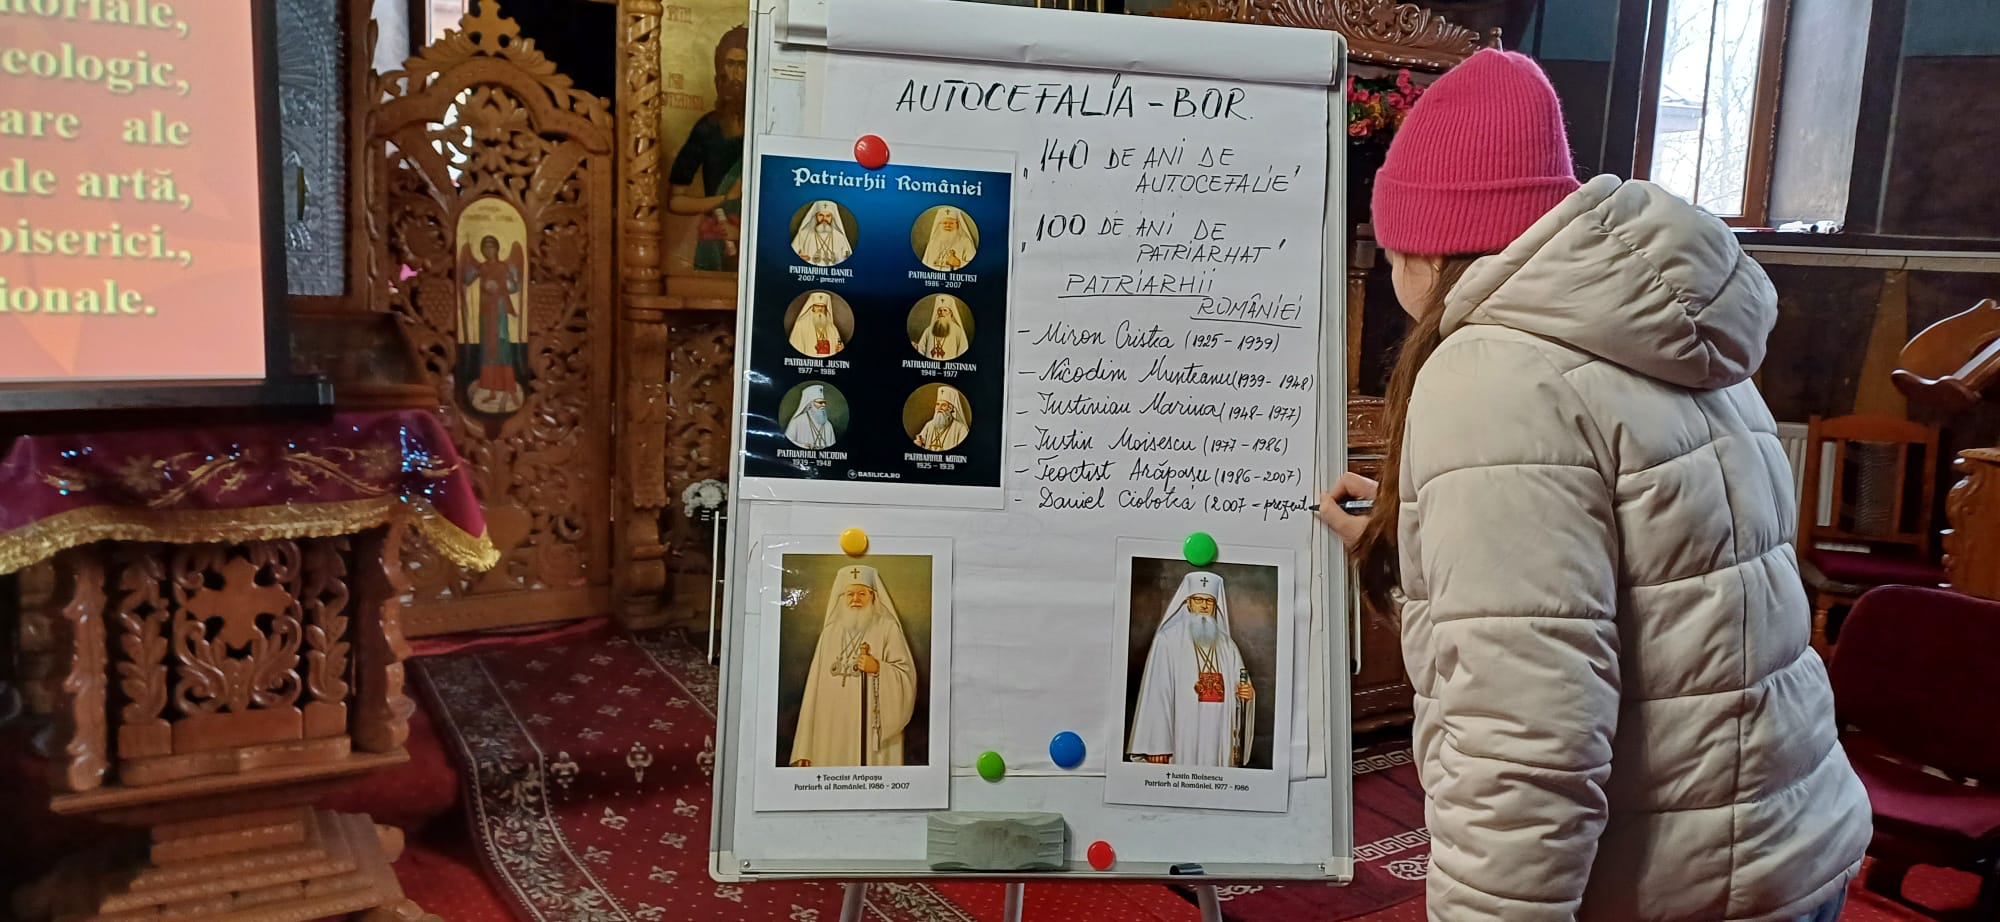 toriale,
eologic,
are ale
de artă,
biserici.,
ionale.
AUTOCEFALIA - B.O.R.
"140 DE ANI DE
AUTOCEFALIE"
"100 DE ANI DE
PATRIARHAT"
PATRIARHII
ROMÂNIEI
- Miron Cristea (1925 - 1939)
- Nicodim Munteanu (1939 - 1948)
- Iustinian Marina (1948 - 1977)
- Iustin Moisescu (1977 - 1986)
- Teoctist Arăpașu (1986 - 2007)
- Daniel Ciobotea (2007 - prezent
Patriarhii României
PATRIARHUL DANIEL
2007 - prezent
PATRIARHUL TEOCTIST
1986 - 2007
PATRIARHUL JUSTIN
1977 - 1986
PATRIARHUL JUSTINIAN
1948 - 1977
PATRIARHUL NICODIM
1939 - 1948
PATRIARHUL MIRON
1925 - 1939
BASILICA.RO
✝ Teoctist Arăpașu
Patriarh al României, 1986 - 2007
✝ Iustin Moisescu
Patriarh al României, 1977 - 1986